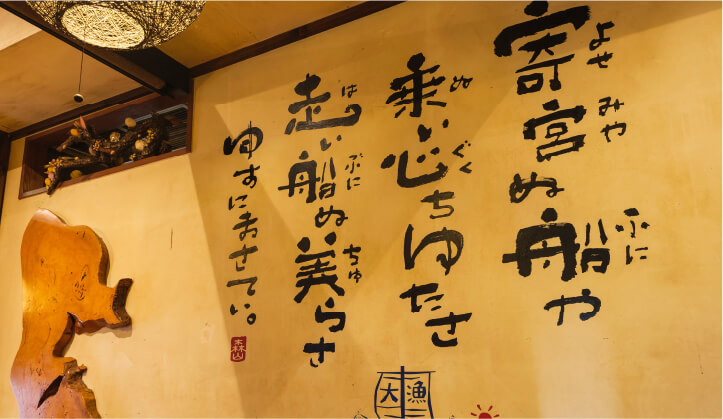 寄宮ぬ船や
よせ みや ふに
乗い心ちゆたさ
ぬ ぐく
走い船ぬ美らさ
は ぶに ちゅ
ゆすにまさてい。
森山
大漁